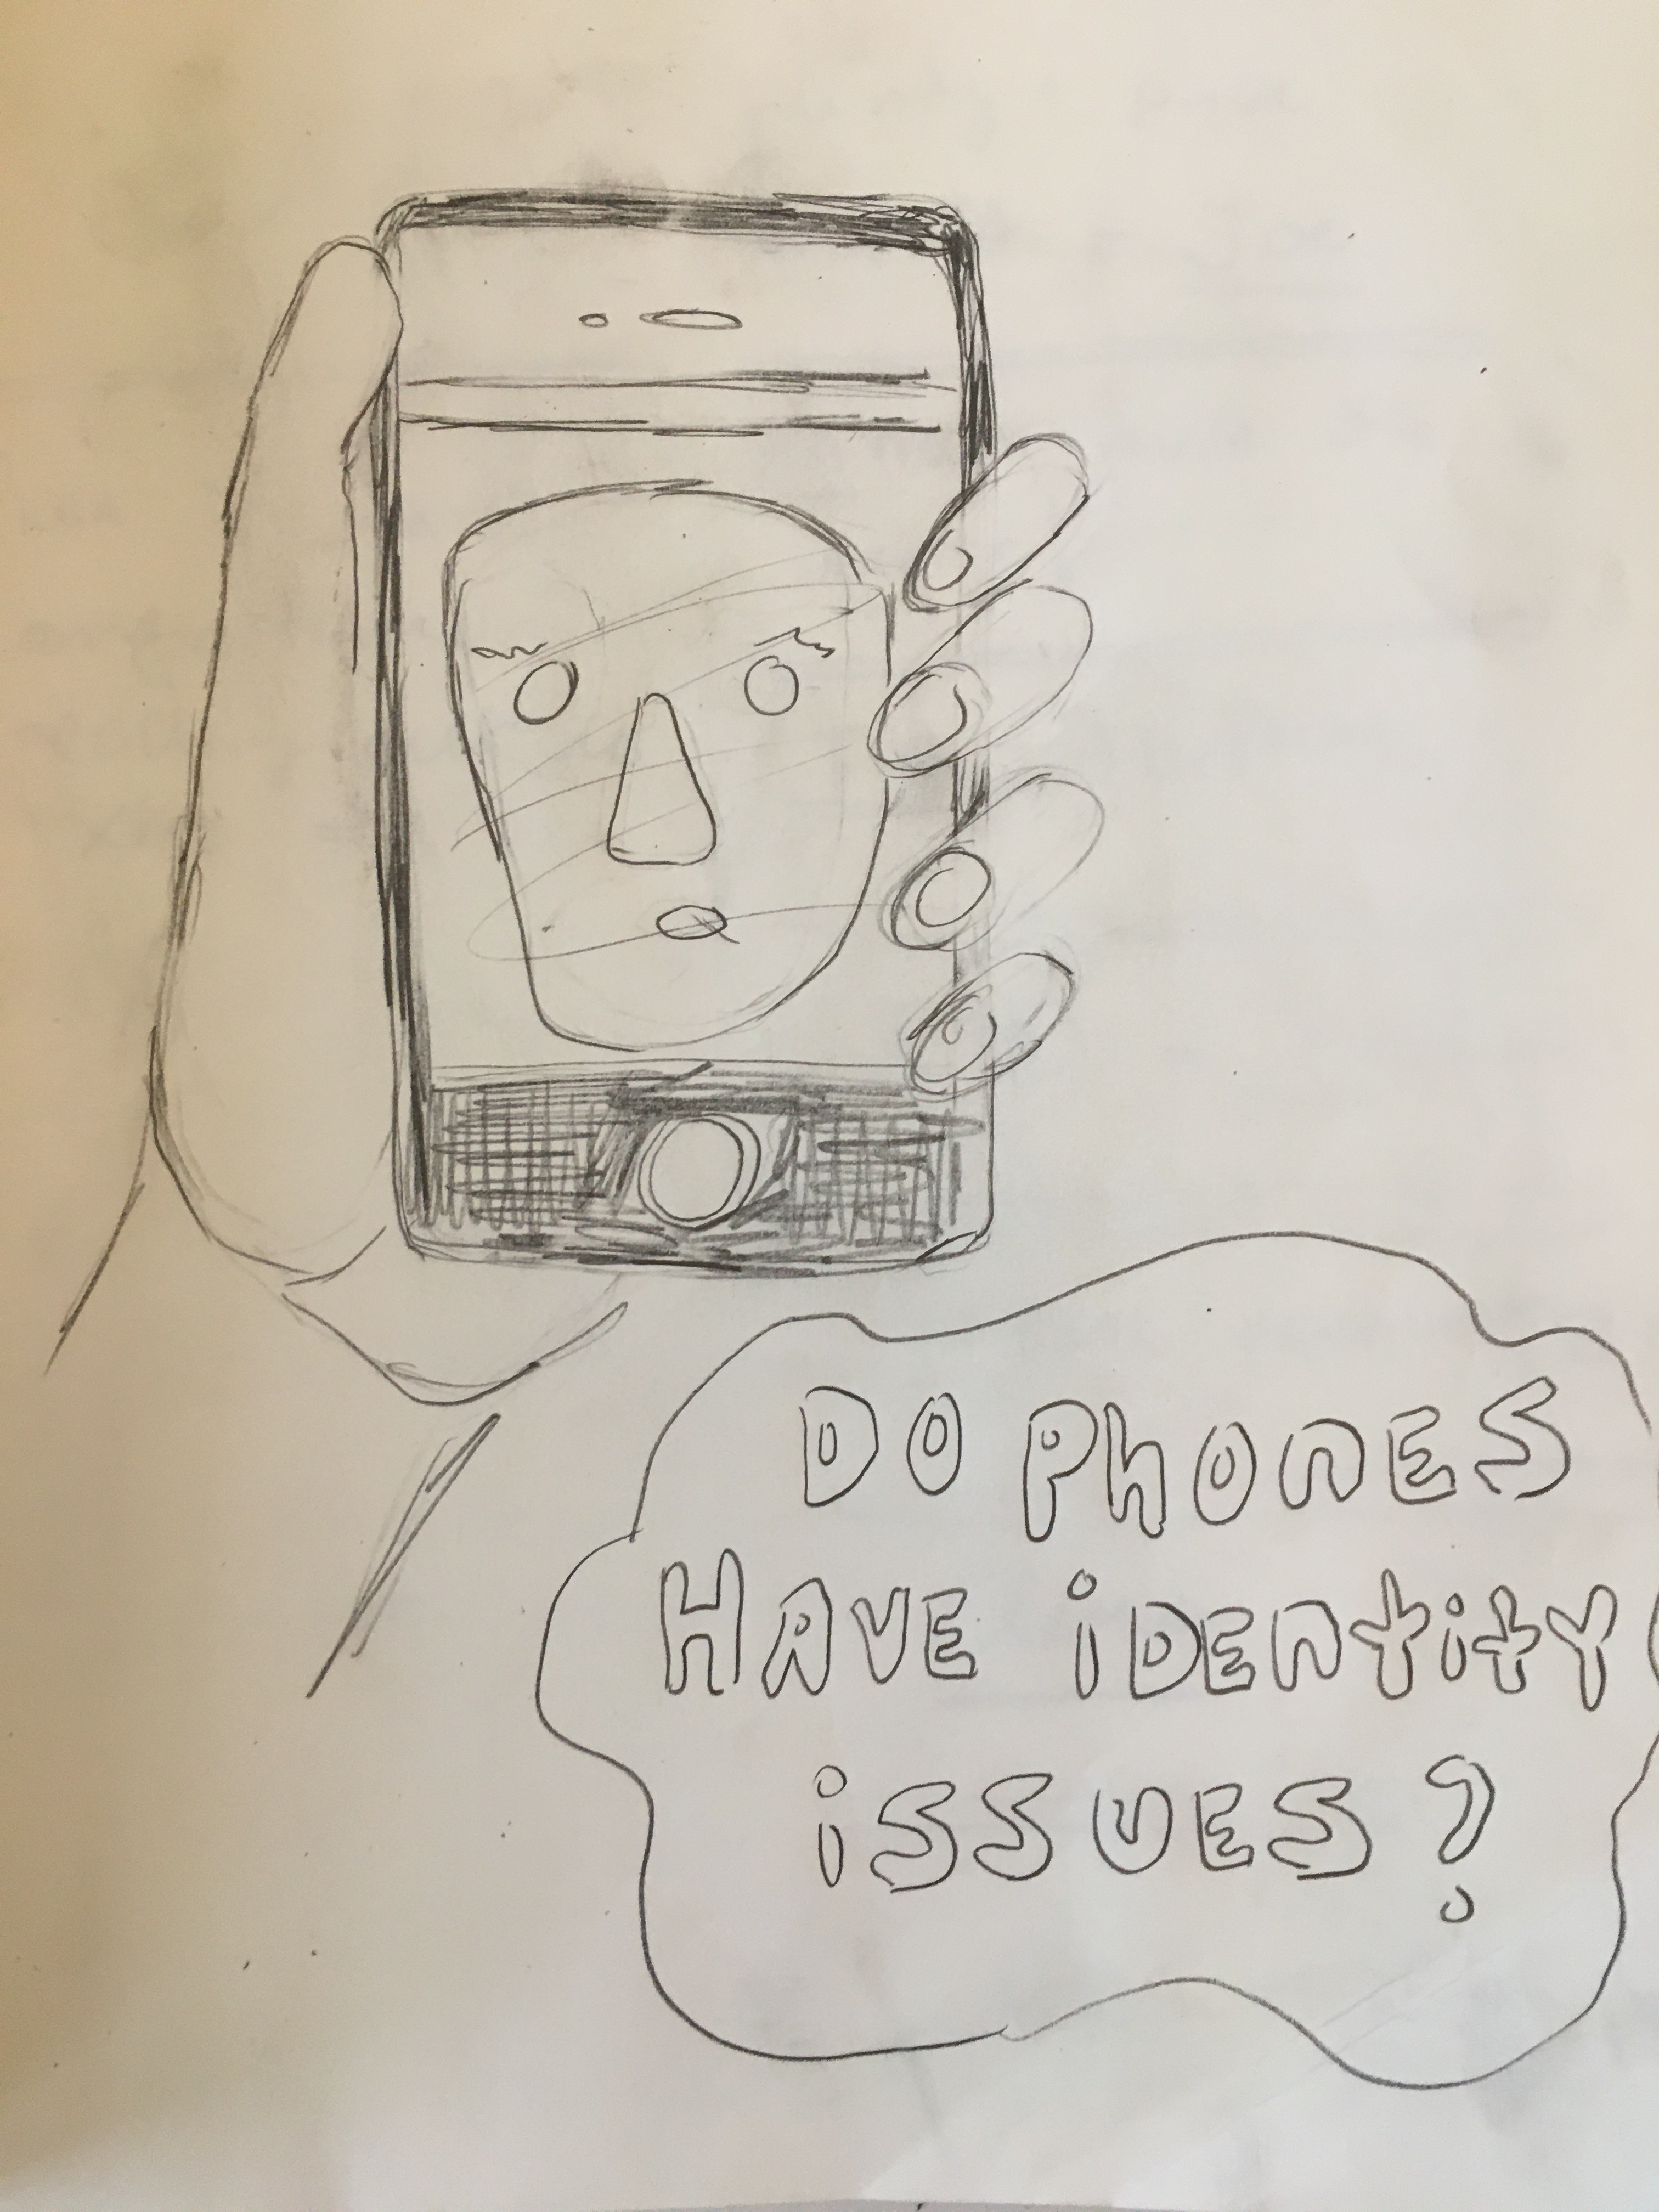 DO PhOnES
HAVE iDEntity
iSSUES?